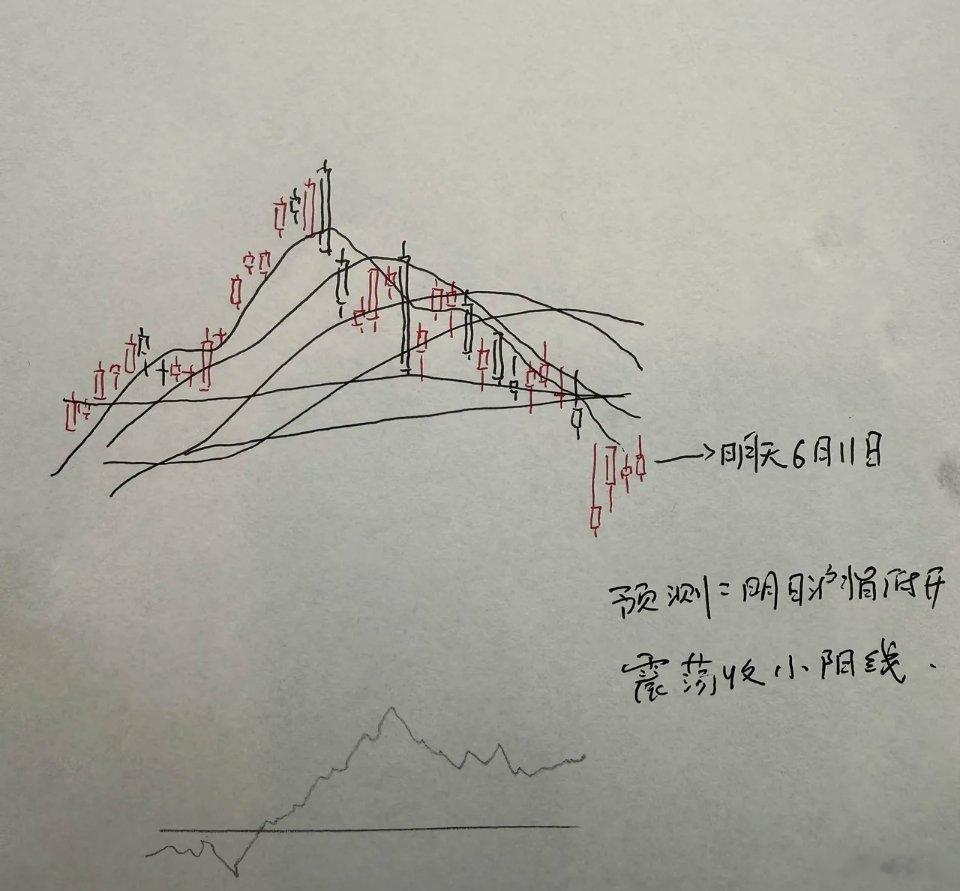 明天6月11日
预测：明日沪指低开
震荡收小阳线.